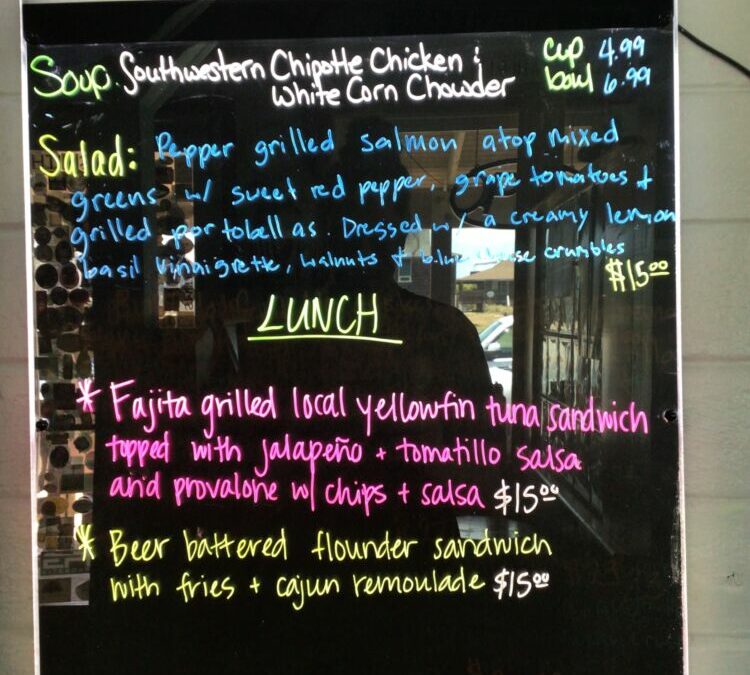 Soup. Southwestern Chipotle Chicken & cup 4.99
White Corn Chowder bowl 6.99
Salad: Pepper grilled salmon atop mixed
greens w/ sweet red pepper, grape tomatoes +
grilled portobellas. Dressed w/ a creamy lemon
basil vinaigrette, walnuts + blue cheese crumbles
$15.00
LUNCH
* Fajita grilled local yellowfin tuna sandwich
topped with jalapeño + tomatillo salsa
and provalone w/ chips + salsa $15.00
* Beer battered flounder sandwich
with fries + cajun remoulade $15.00